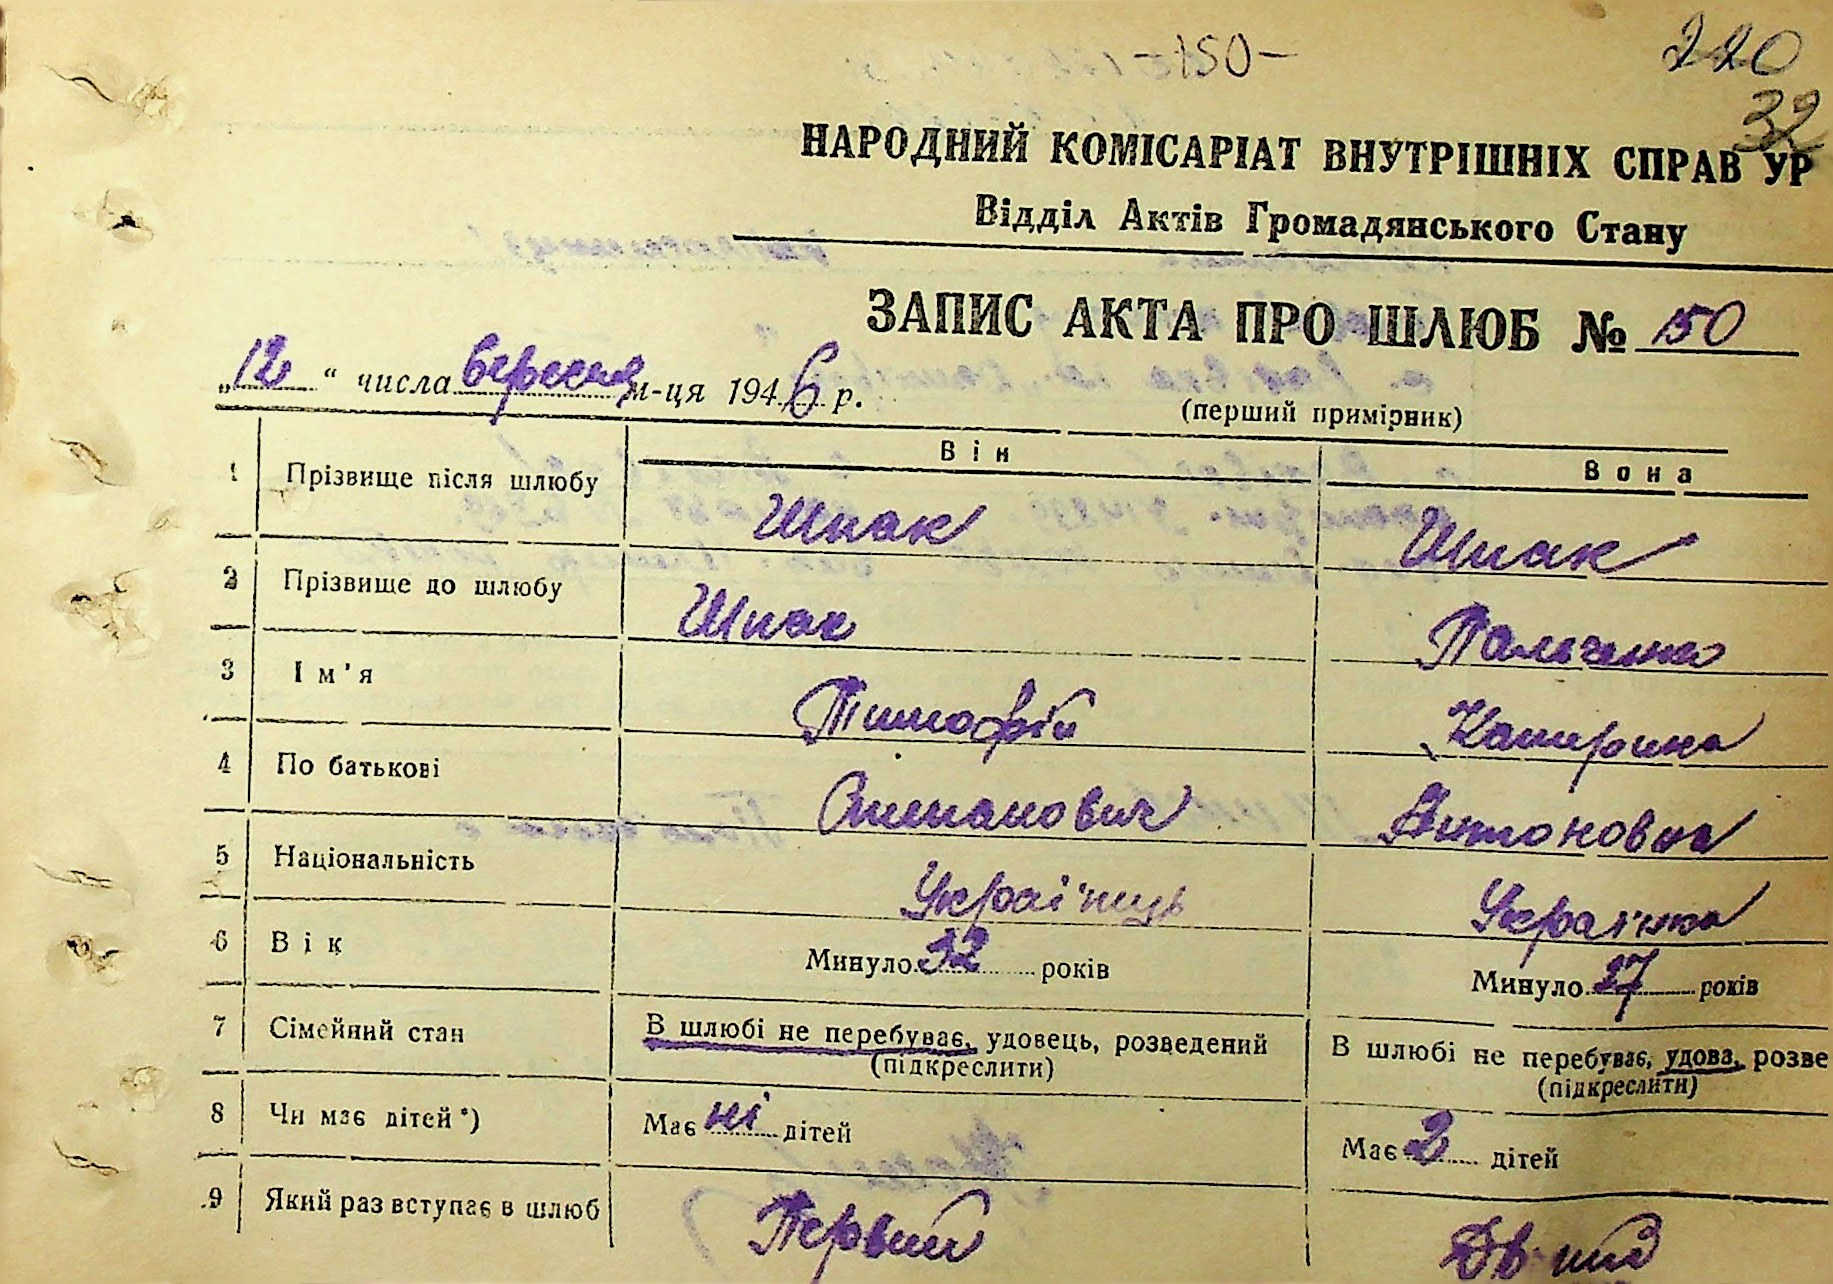 -150-
220
32
НАРОДНИЙ КОМІСАРІАТ ВНУТРІШНІХ СПРАВ УР
Відділ Актів Громадянського Стану
ЗАПИС АКТА ПРО ШЛЮБ № 150
„12“ числа вересня м-ця 1946 р.
(перший примірник)
Він Вона
1 Прізвище після шлюбу Шпак Шпак
2 Прізвище до шлюбу Шпак Пальченко
3 Ім'я Тимофій Катерина
4 По батькові Степанович Антоновна
5 Національність Українець Українка
6 Вік Минуло 32 років Минуло 37 років
7 Сімейний стан В шлюбі не перебуває, удовець, розведений В шлюбі не перебуває, удова, розве
(підкреслити) (підкреслити)
8 Чи має дітей*) Має ні дітей Має 2 дітей
9 Який раз вступає в шлюб Первий